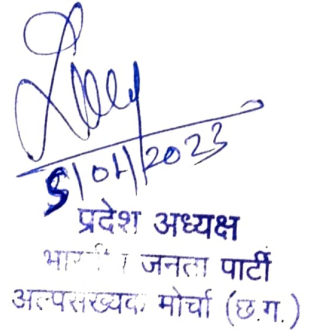 5/01/2023
प्रदेश अध्यक्ष
जनता पार्टी
अल्पसंख्यक मोर्चा (छ.ग.)